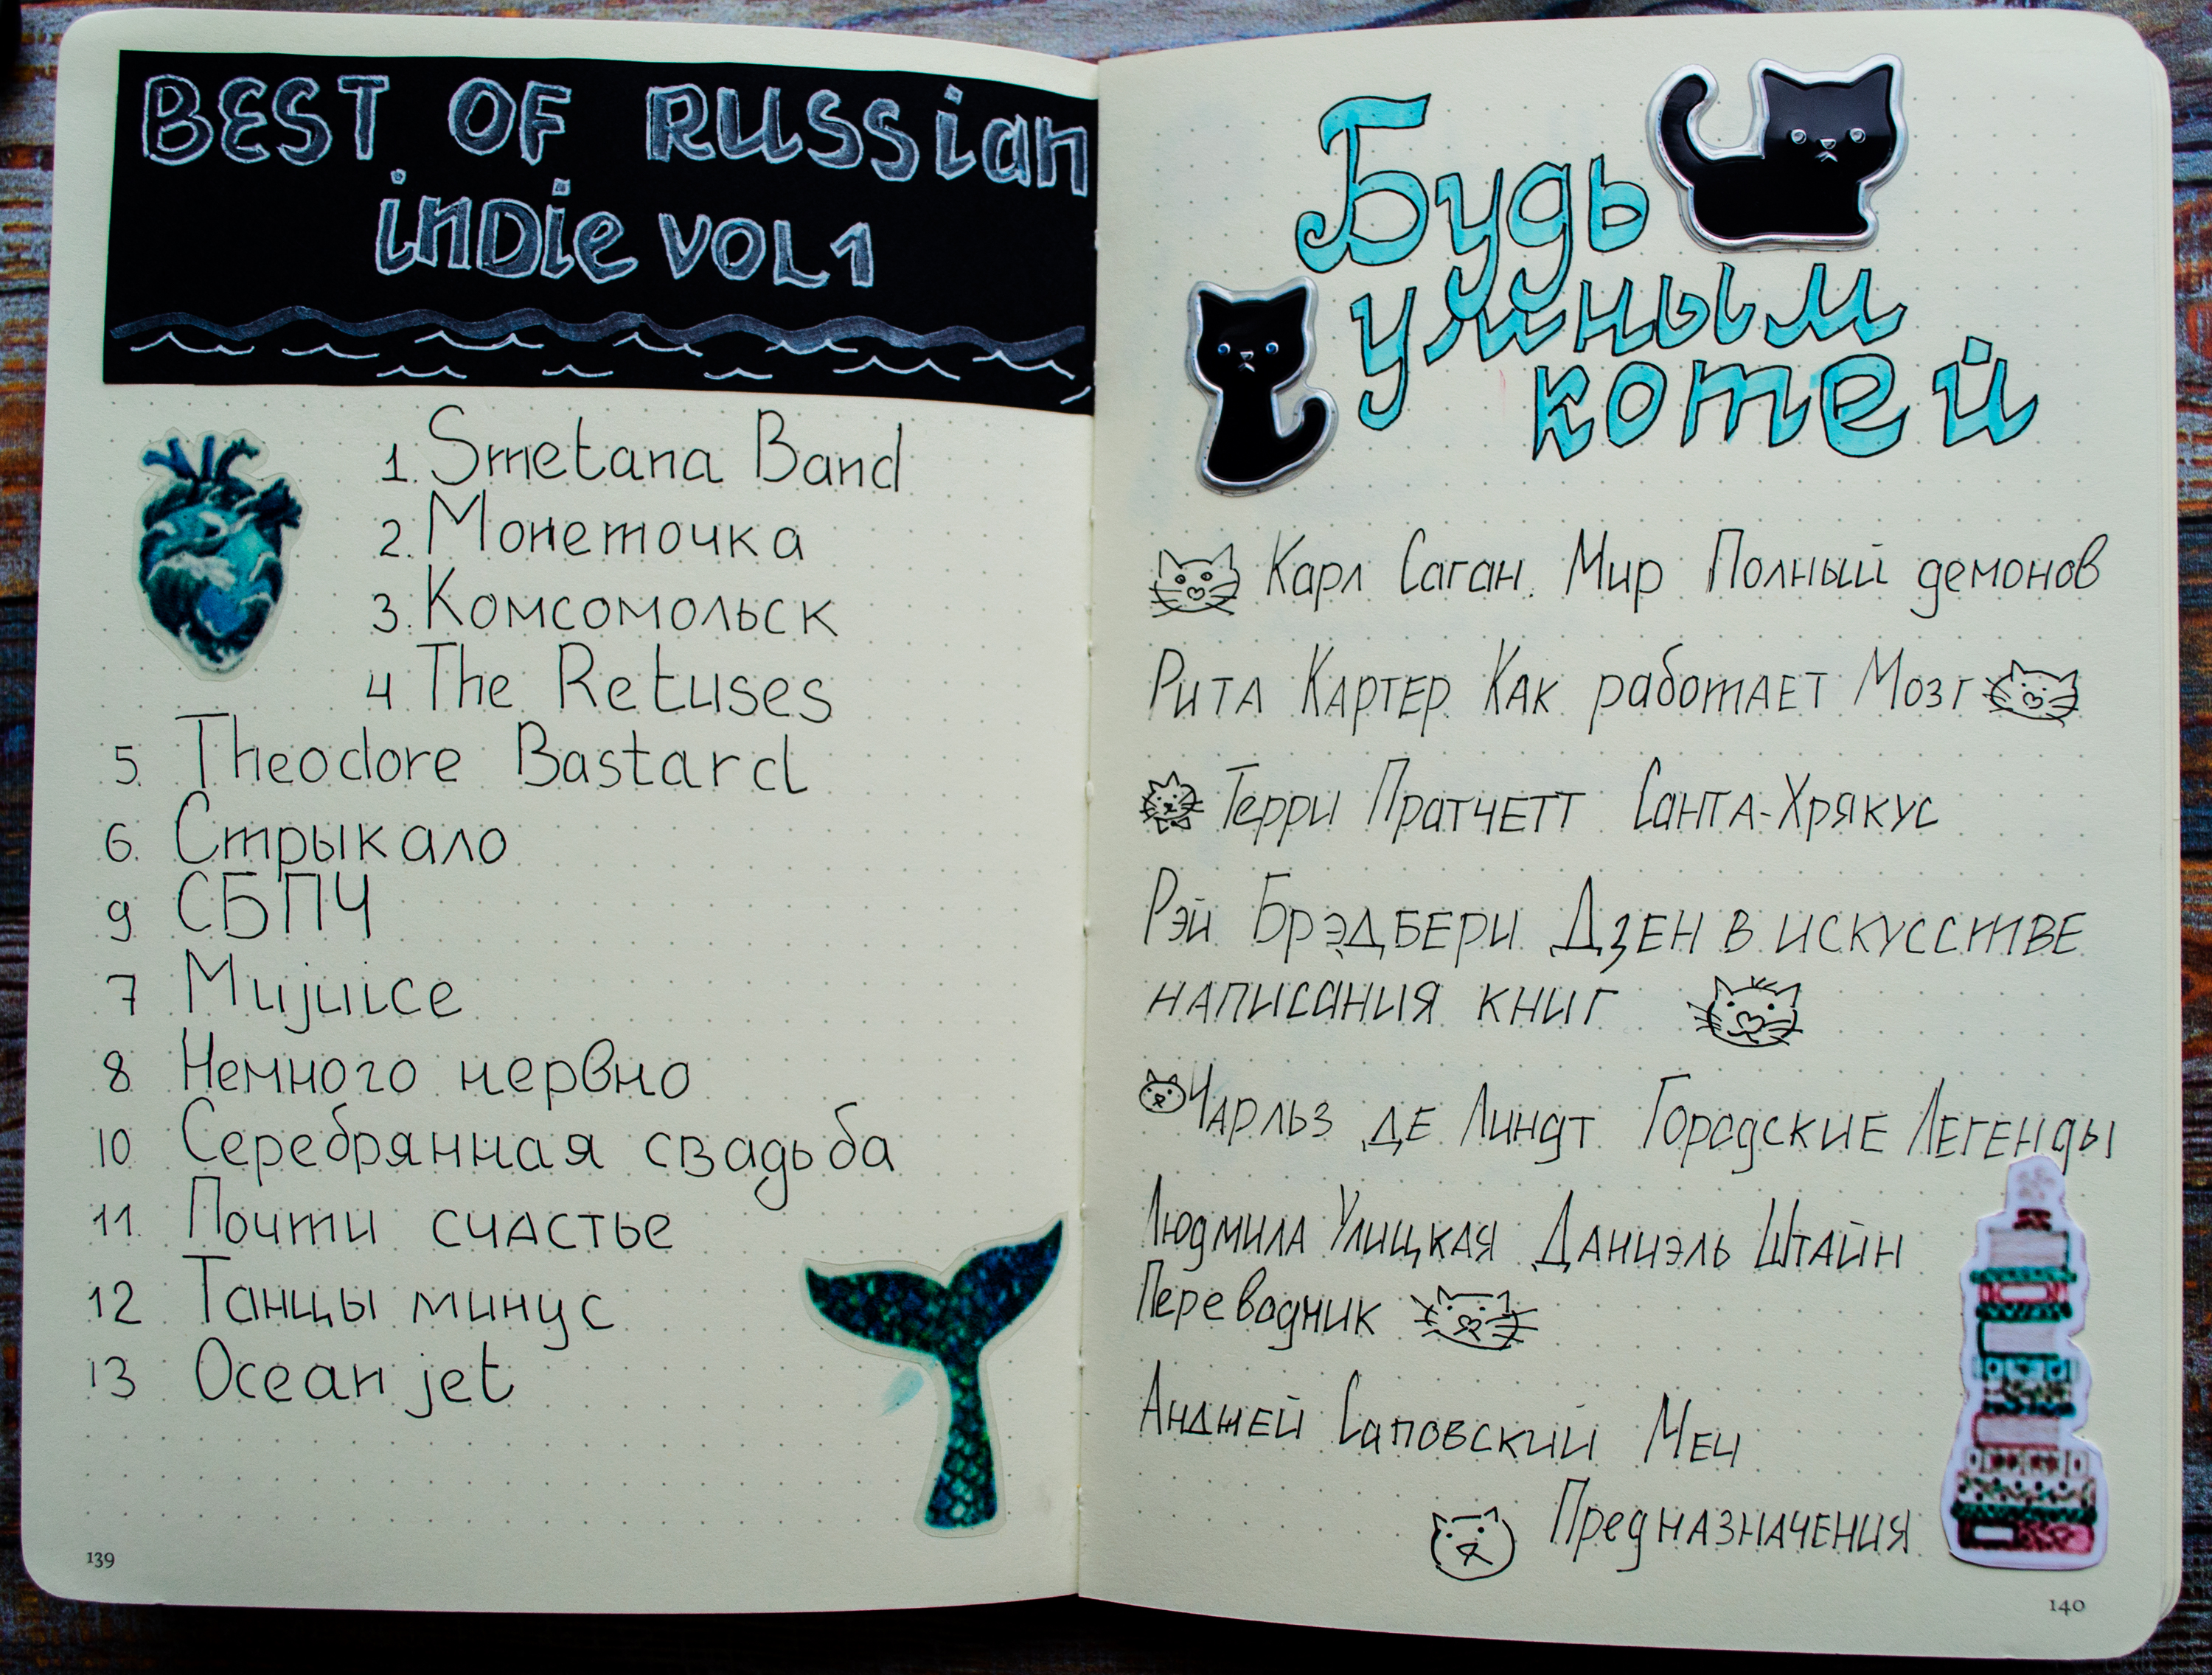 BEST OF RUSSian
inDie VOL 1
1. Smetana Band
2. Монеточка
3. Комсомольск
4 The Retuses
5. Theodore Bastard
6. Стрыкало
9 СБПЧ
7 Mujuice
8 Немного нервно
10 Серебрянная свадьба
11 Почти счастье
12 Танцы минус
13 Ocean jet
139
Будь
умным
котей
Карл Саган. Мир Полный демонов
Рита Картер Как работает Мозг
Терри Пратчетт Санта-Хрякус
Рэй Брэдбери Дзен в искусстве
написания книг
Чарльз де Линдт Городские Легенды
Людмила Улицкая Даниэль Штайн
Переводник
Анджей Саповский Меч
Предназначения
140